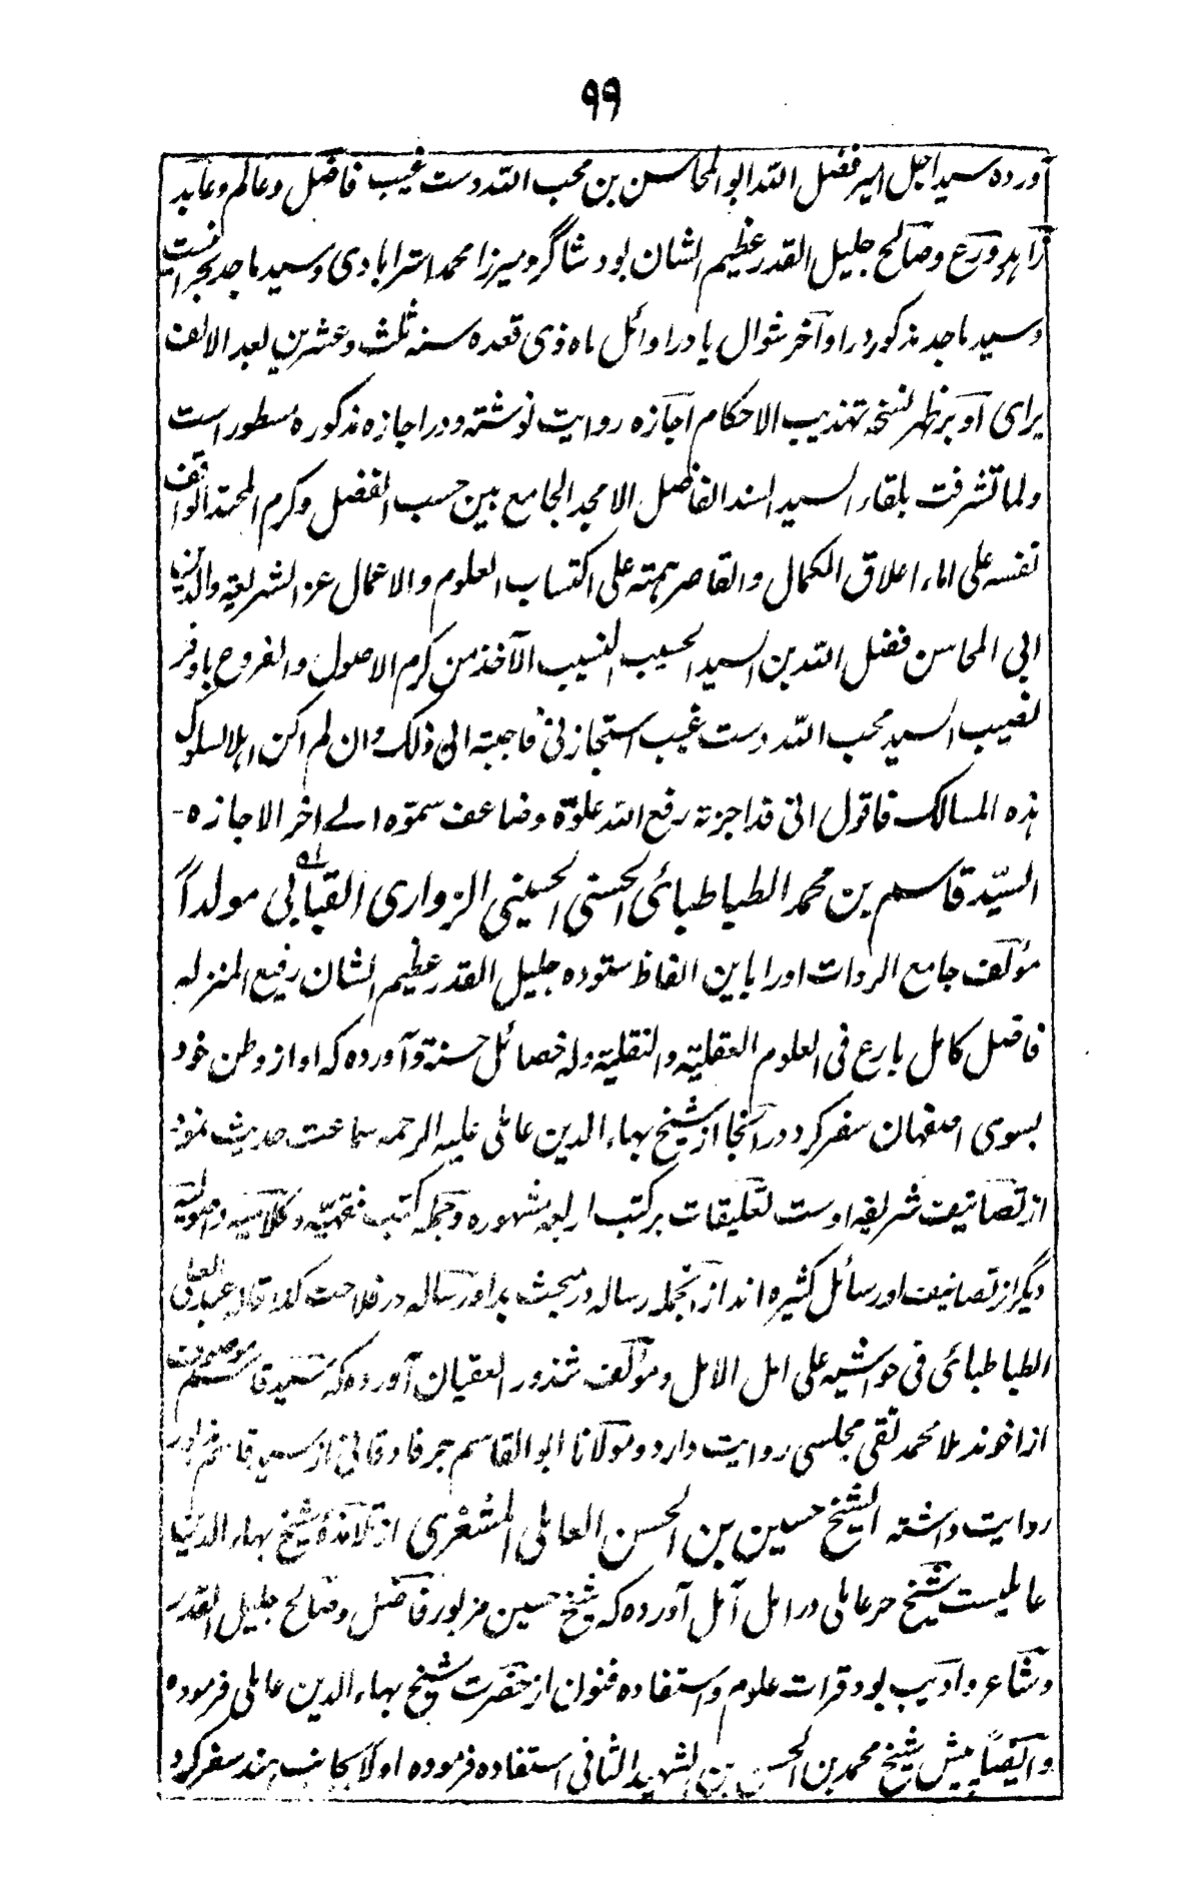 ۹۹
آورده سید اجل امیر فضل الله ابو المحاسن بن محب الله دست غیب فاضل و عالم و عابد
زاهد و ورع و صالح جلیل القدر عظیم الشان بود شاگرد میرزا محمد استرابادی و سید ماجد بحرانیست
و سید ماجد مذکور در اواخر شوال یا در اوائل ماه ذی قعده سنه ثلث و عشرین بعد الالف
برای او بر ظهر نسخه تهذیب الاحکام اجازه روایت نوشته و در اجازه مذکوره مسطور است
ولما تشرفت بلقاء السید السند الفاضل الامجد الجامع بین حسب الفضل وکرم المحتد الواقف
نفسه علی اقتناء اعلاق الکمال والقاصر همته علی اکتساب العلوم والاعمال عز الشریعة والدین
ابی المحاسن فضل الله بن السید الحسیب النسیب الآخذ من کرم الاصول والفروع باوفر
نصیب السید محب الله دست غیب استجازنی فاجبته الی ذلک وان لم اکن اهلا لسلوک
هذه المسالک فاقول انی قد اجزته رفع الله علوّه وضاعف سموّه الے اخر الاجازه -
السیّد قاسم بن محمد الطباطبائی الحسنی الحسینی الزواری القبائی مولداً
مؤلف جامع الردات او را باین الفاظ ستوده جلیل القدر عظیم الشان رفیع المنزله
فاضل کامل بارع فی العلوم العقلیة والنقلیة وله خصائل حسنة و آورده که او از وطن خود
بسوی اصفهان سفر کرد در آنجا از شیخ بهاء الدین عاملی علیه الرحمه سماعت حدیث نمود
از تصانیف شریفه اوست تعلیقات بر کتب اربعه مشهوره و جمله کتب فقهیّه و کلامیه و اصولیه
دیگر از تصانیف او رسائل کثیره اند از آنجمله رساله در مبحث بدا و رساله در فلاحت کذا قال عبد العلی
الطباطبائی فی حواشیه علی امل الامل و مؤلف شذور العقیان آورده که سید قاسم موصوف
از اخوند ملا محمد تقی مجلسی روایت دارد و مولانا ابو القاسم جرفادقانی از سید قاسم مزبور
روایت داشته الشیخ حسین بن الحسن العاملی المشغری از تلامذه شیخ بهاء الدین
عاملیست شیخ حر عاملی در امل آمل آورده که شیخ حسین مزبور فاضل و صالح جلیل القدر
و شاعر و ادیب بود قرات علوم و استفاده فنون از حضرت شیخ بهاء الدین عاملی فرموده
و ایضاً پیش شیخ محمد بن الحسن بن الشهید الثانی استفاده فرموده اولاً بجانب هند سفر کرد